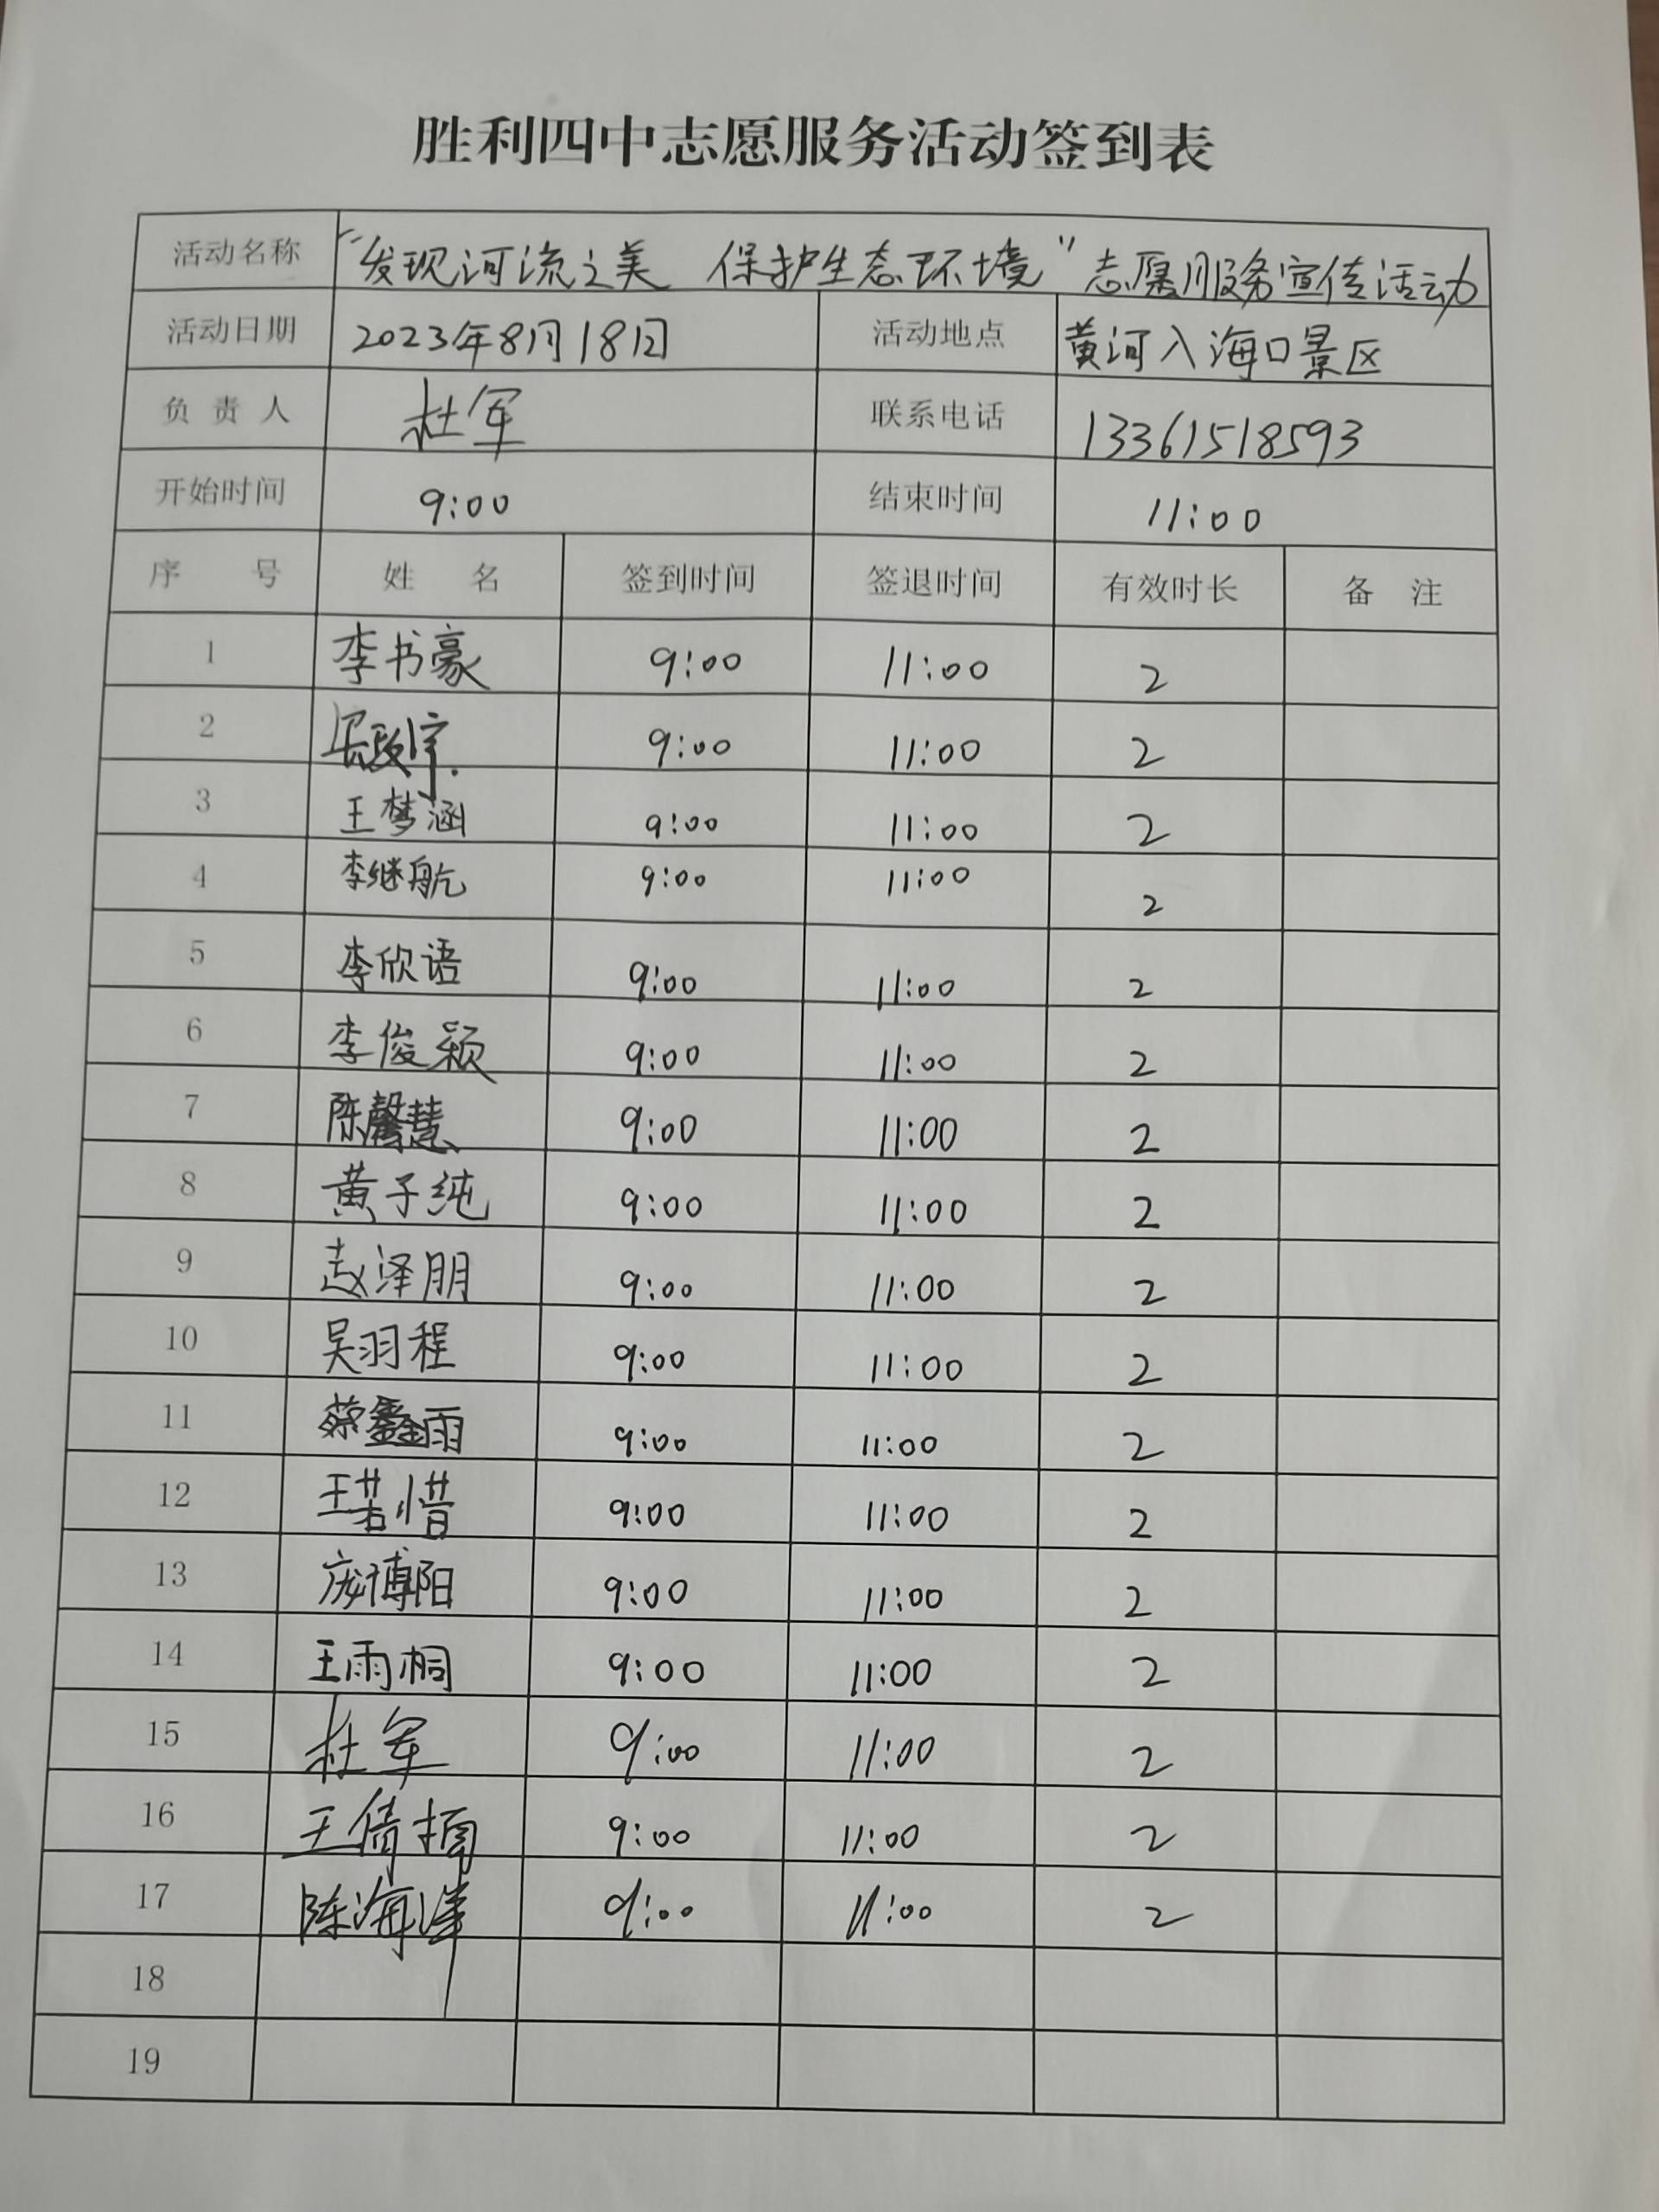 胜利四中志愿服务活动签到表
活动名称 “发现河流之美 保护生态环境”志愿服务宣传活动
活动日期 2023年8月18日 活动地点 黄河入海口景区
负责人 杜军 联系电话 13361518593
开始时间 9:00 结束时间 11:00
序号 姓名 签到时间 签退时间 有效时长 备注
1 李书豪 9:00 11:00 2
2 9:00 11:00 2
3 王梦涵 9:00 11:00 2
4 李继航 9:00 11:00 2
5 李欣语 9:00 11:00 2
6 李俊颖 9:00 11:00 2
7 陈馨慧 9:00 11:00 2
8 黄子纯 9:00 11:00 2
9 赵泽朋 9:00 11:00 2
10 吴羽程 9:00 11:00 2
11 蔡鑫雨 9:00 11:00 2
12 王若惜 9:00 11:00 2
13 庞博阳 9:00 11:00 2
14 王雨桐 9:00 11:00 2
15 杜军 9:00 11:00 2
16 王倩楠 9:00 11:00 2
17 陈海洋 9:00 11:00 2
18
19